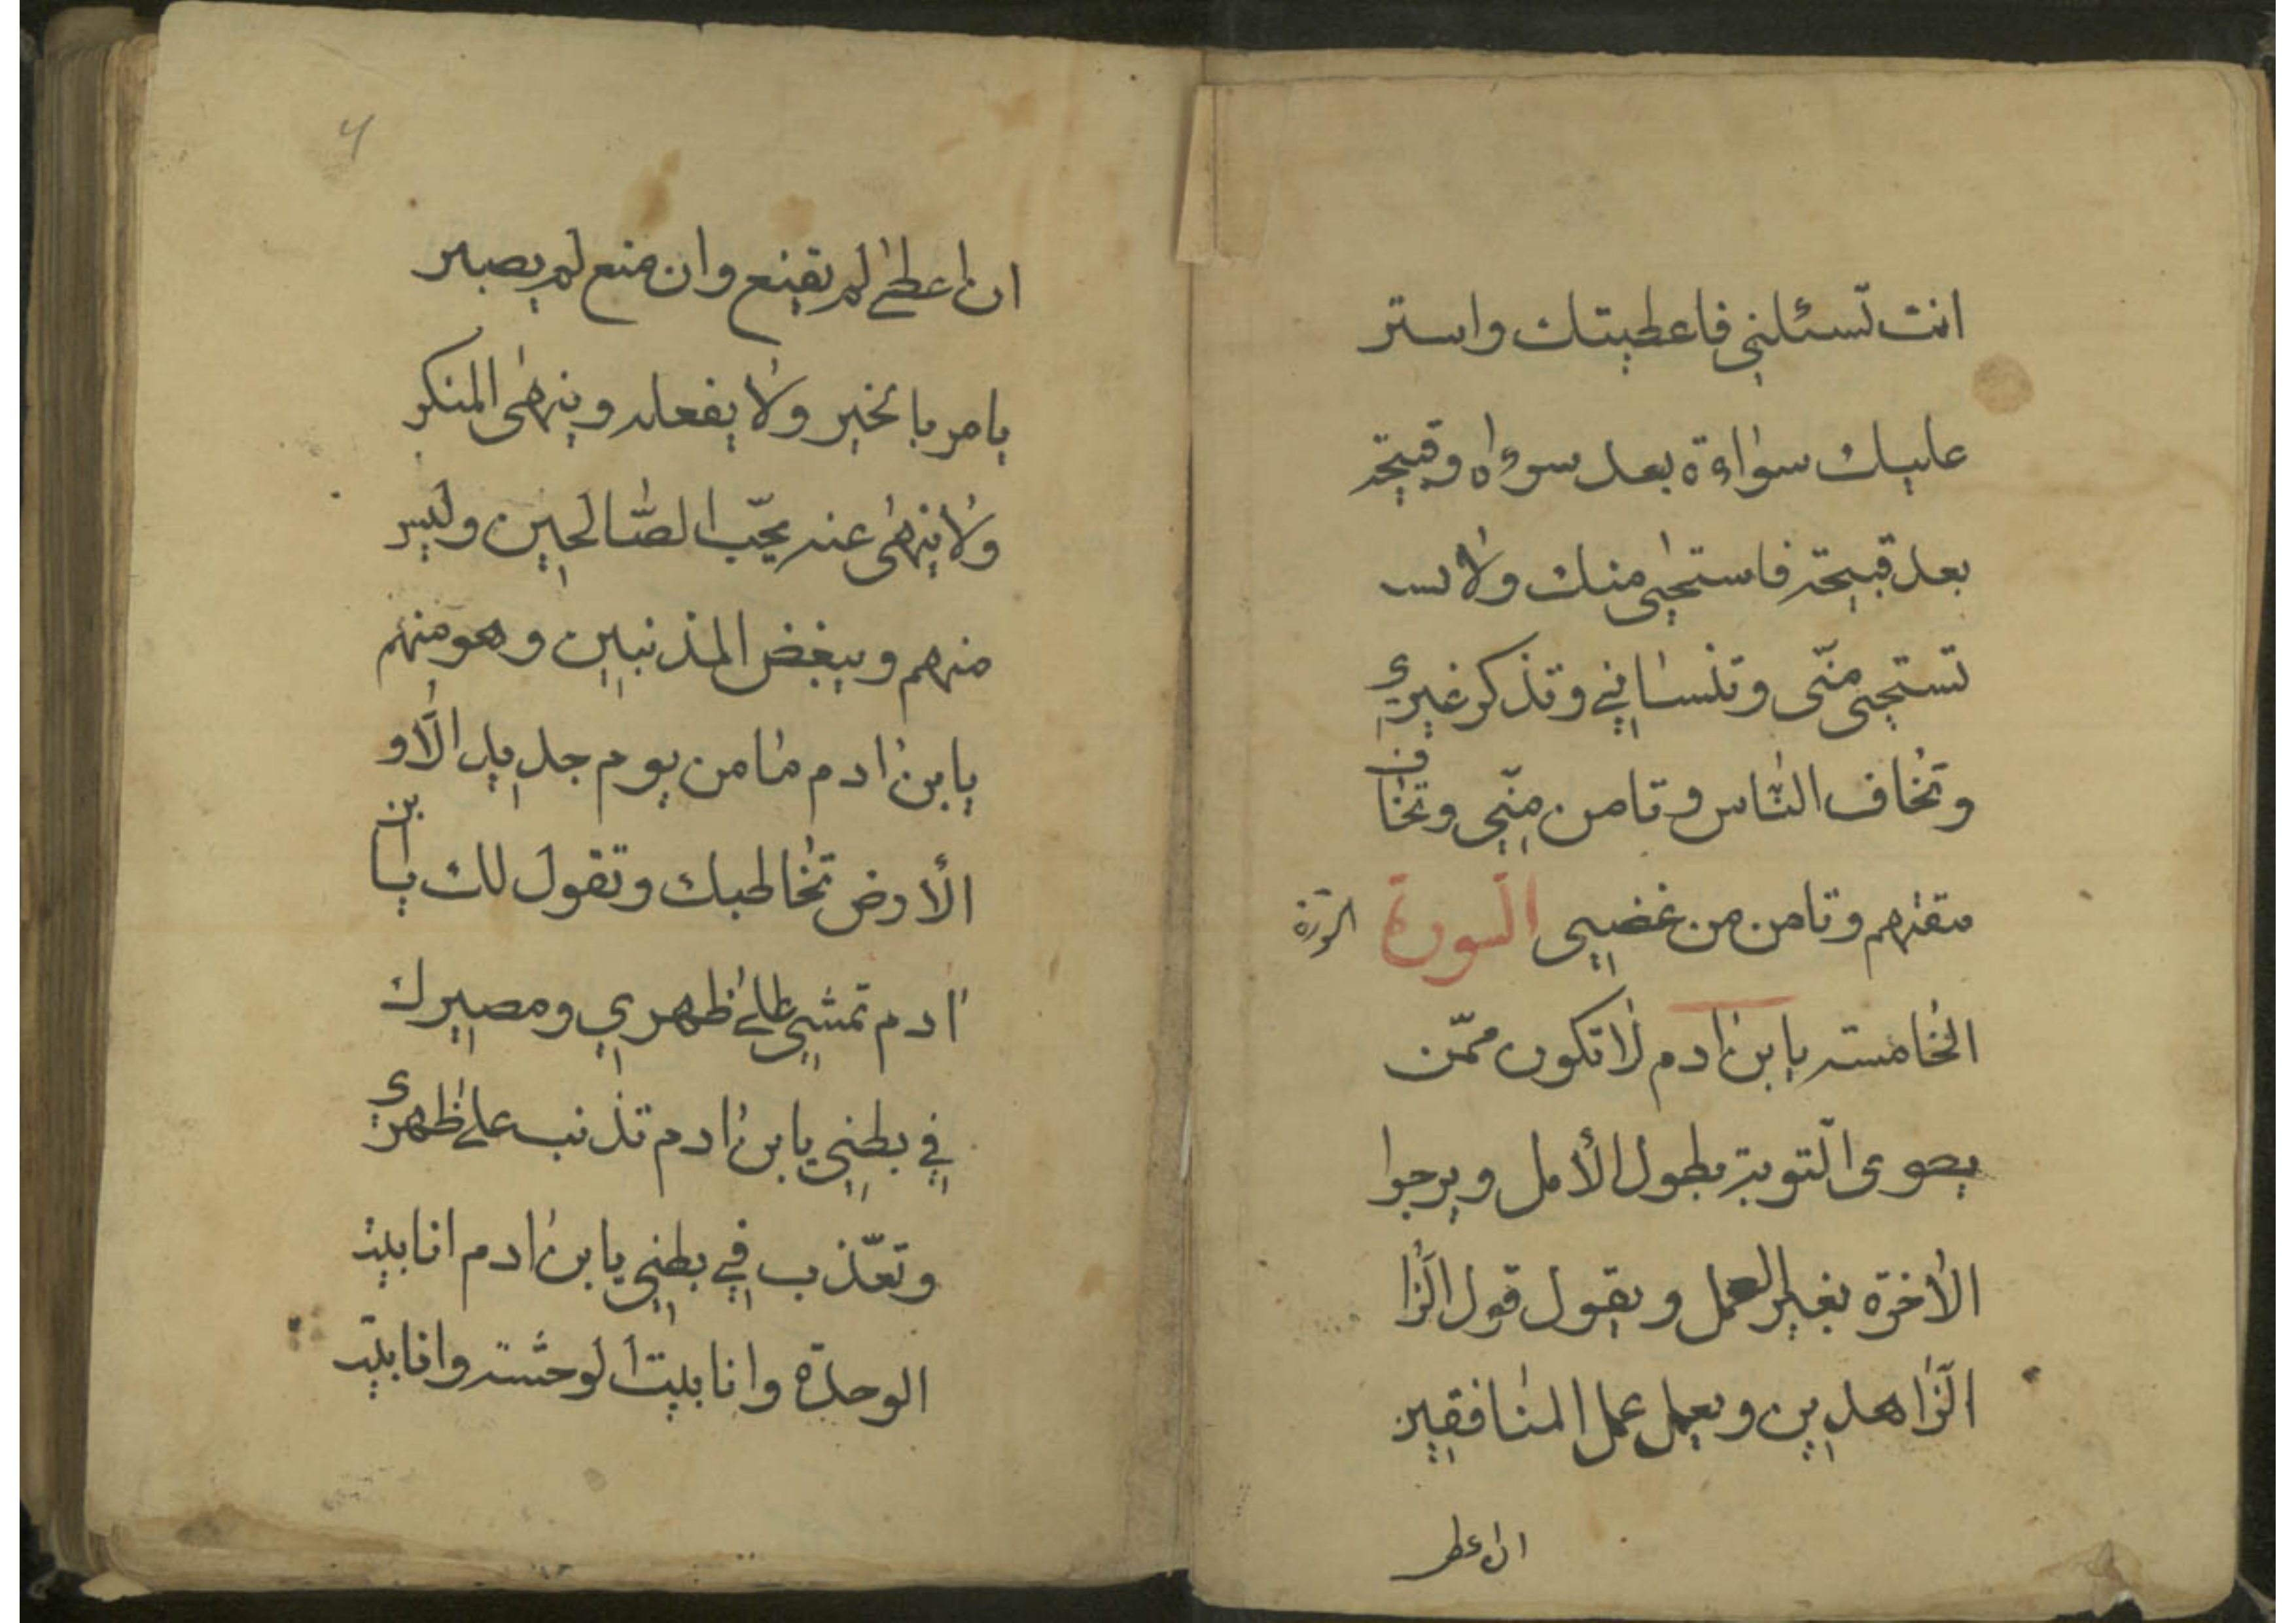 انت تسئلني فاعطيتك واستر
عليك سواءة بعد سوءاه وقبيحة
بعد قبيحة فاستحيى منك ولا تسـ
تستحيى منّى وتنساني وتذكر غيري
وتخاف النّاس وتامن منّي وتخاف
مقتهم وتامن من غضبي السّورة
السورة
الخامسة يابن ادم لا تكون ممّن
التّوبة بطول الأمل ويرجوا
الأخرة بغير العمل ويقول قول الزّا
الزّاهدين ويعمل عمل المنافقين
ان اعطى
4
ان اعطى لم يقنع وان منع لم يصبر
يامر بالخير ولا يفعله وينهى المنكر
ولا ينهى عنه يحبّ الصّالحين وليس
منهم ويبغض المذنبين وهو منهم
يابن ادم ما من يوم جديد الّا و
الأرض تخاطبك وتقول لك يابن
ادم تمشي على ظهري ومصيرك
في بطني يابن ادم تذنب على ظهري
وتعذّب في بطني يابن ادم انا بيت
الوحدة وانا بيت الوحشة وانا بيت